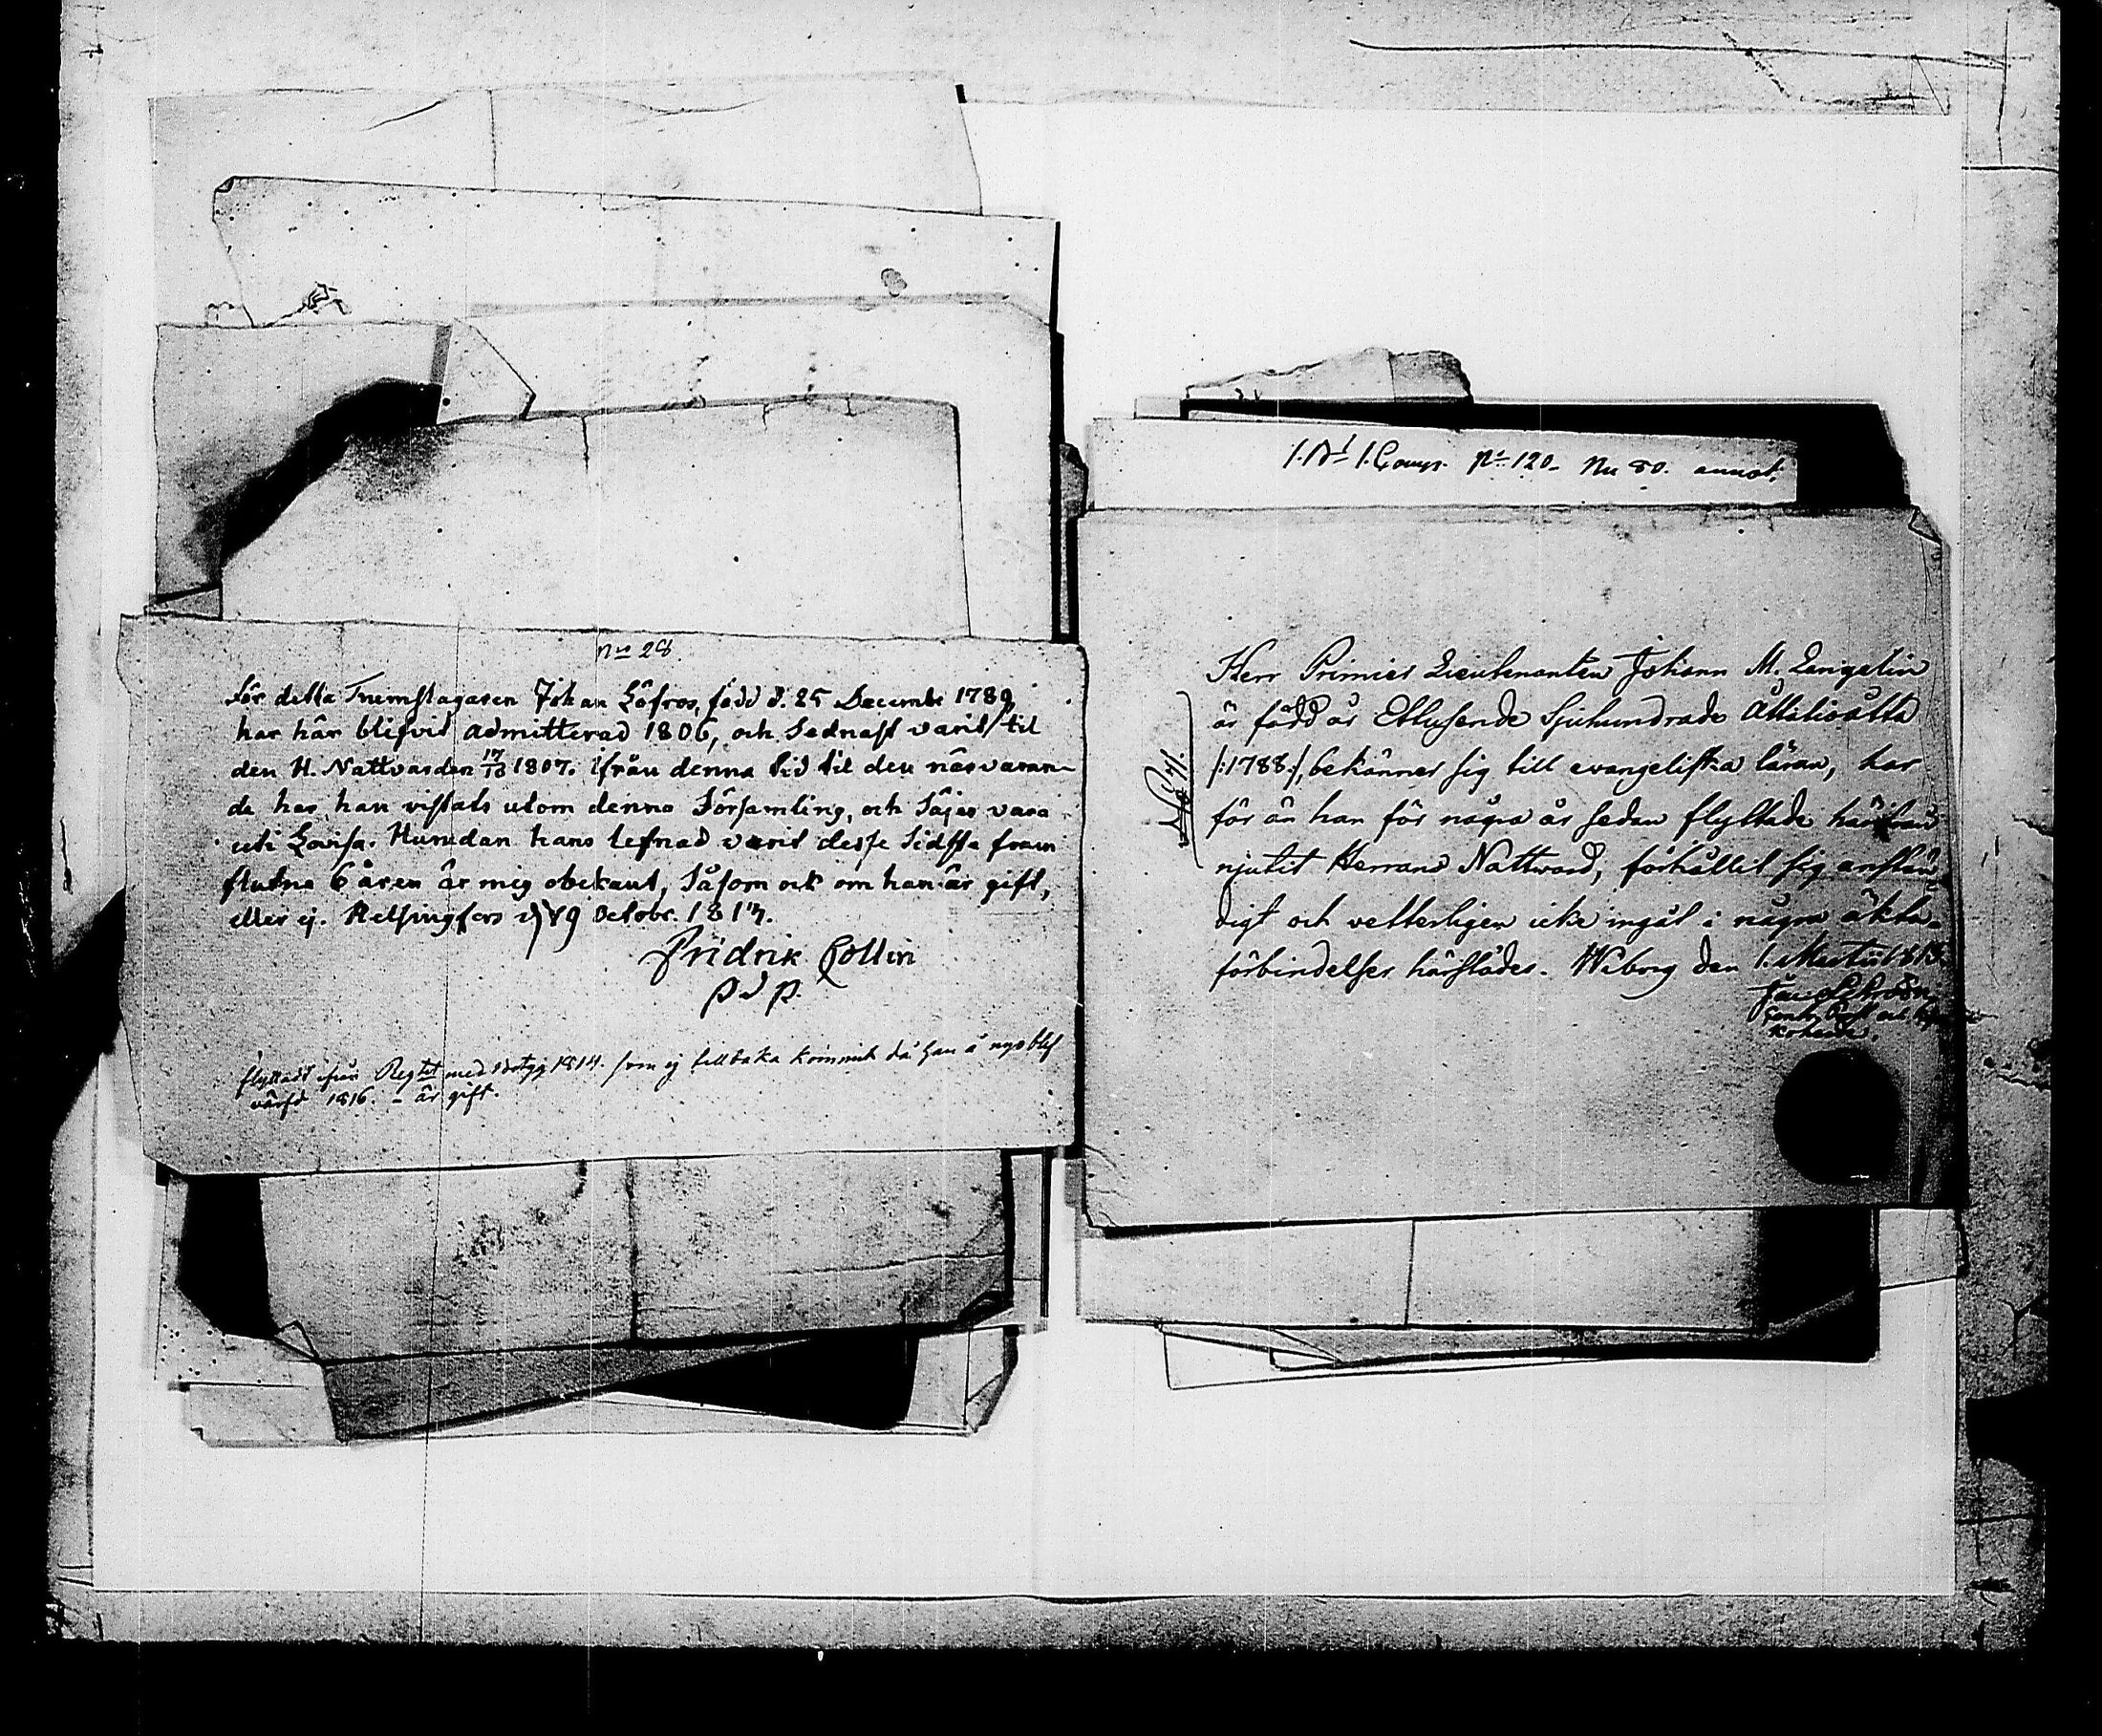 Nro 28.
För detta Trumslagaren Johan Löfros, född d. 25 Decembr 1789,
har här blifvit admitterad 1806, och Sednast varit til
den H. Nattvarden 17/10 1807. ifrån denna tid til den närvaran-
de har han vistats utom denna Församling, och Säjes vara
uti Lovisa. Hurudan hans lefnad varit desse Sidsta fram
flutna 6 åren är mig obekant, Såsom ock om han är gift,
eller ej. Helsingfors d 19 Octobr. 1817.
Fridrik Collin
P d p.
flyttadt ifrån Regtet med betyg 1814. som ej tillbaka kommit då han å nyo blef
värfd 1816. - är gift.
1. Rt 1. Comp. No 120- Nu 80. annot.
Herr Primier Lieutenanten Johann M. Langelin
är född år Ettusende Sjuhundrade Åttatioåtta
/:1788:/, bekänner sig till evangeliska läran, har
för än han för några år sedan flyttade härifrån
njutit Herrans Nattward, förhållit sig anstän
digt och vetterligen icke ingåt i några äkta-
förbindelser härstädes. Wiborg den 1. Martii 181